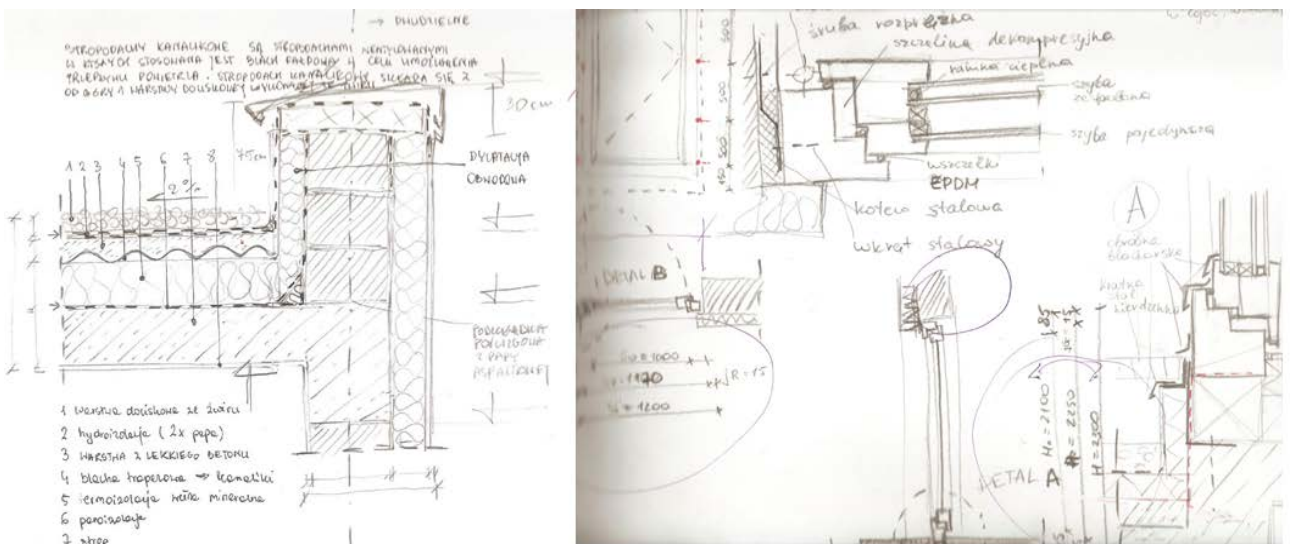 → DWUDZIELNE
STROPODACHY KANALIKOWE SĄ STROPODACHAMI
W KTÓRYCH STOSOWANA JEST BLACHA FAŁDOWA W CELU UMOŻLIWIENIA
PRZEPŁYWU POWIETRZA. STROPODACH KANALIKOWY SKŁADA SIĘ Z
OD GÓRY 1 WARSTWY DOCISKOWEJ
30 cm
75cm
1 2 3 4 5 6 7 8
2%
DYLATACJA
OBWODOWA
PODKŁADKA
POŚLIZGOWA
Z PAPY
ASFALTOWEJ
1 warstwa dociskowa ze żwiru
2 hydroizolacja (2x papa)
3 WARSTWA Z LEKKIEGO BETONU
4 blacha trapezowa → kanaliki
5 termoizolacja wełna mineralna
6 paroizolacja
7 strop
śruba rozprężna
szczelina dekompresyjna
ramka ciepła
szyba
zespolona
szyba pojedyncza
uszczelki
EPDM
kotew stalowa
wkręt stalowy
500
500
500
150
DETAL B
1000
1170
R=15
1200
A
obróbka
blacharska
kratka
stal
nierdzewna
85
15
Ho = 2100
2250
H = 2300
DETAL A